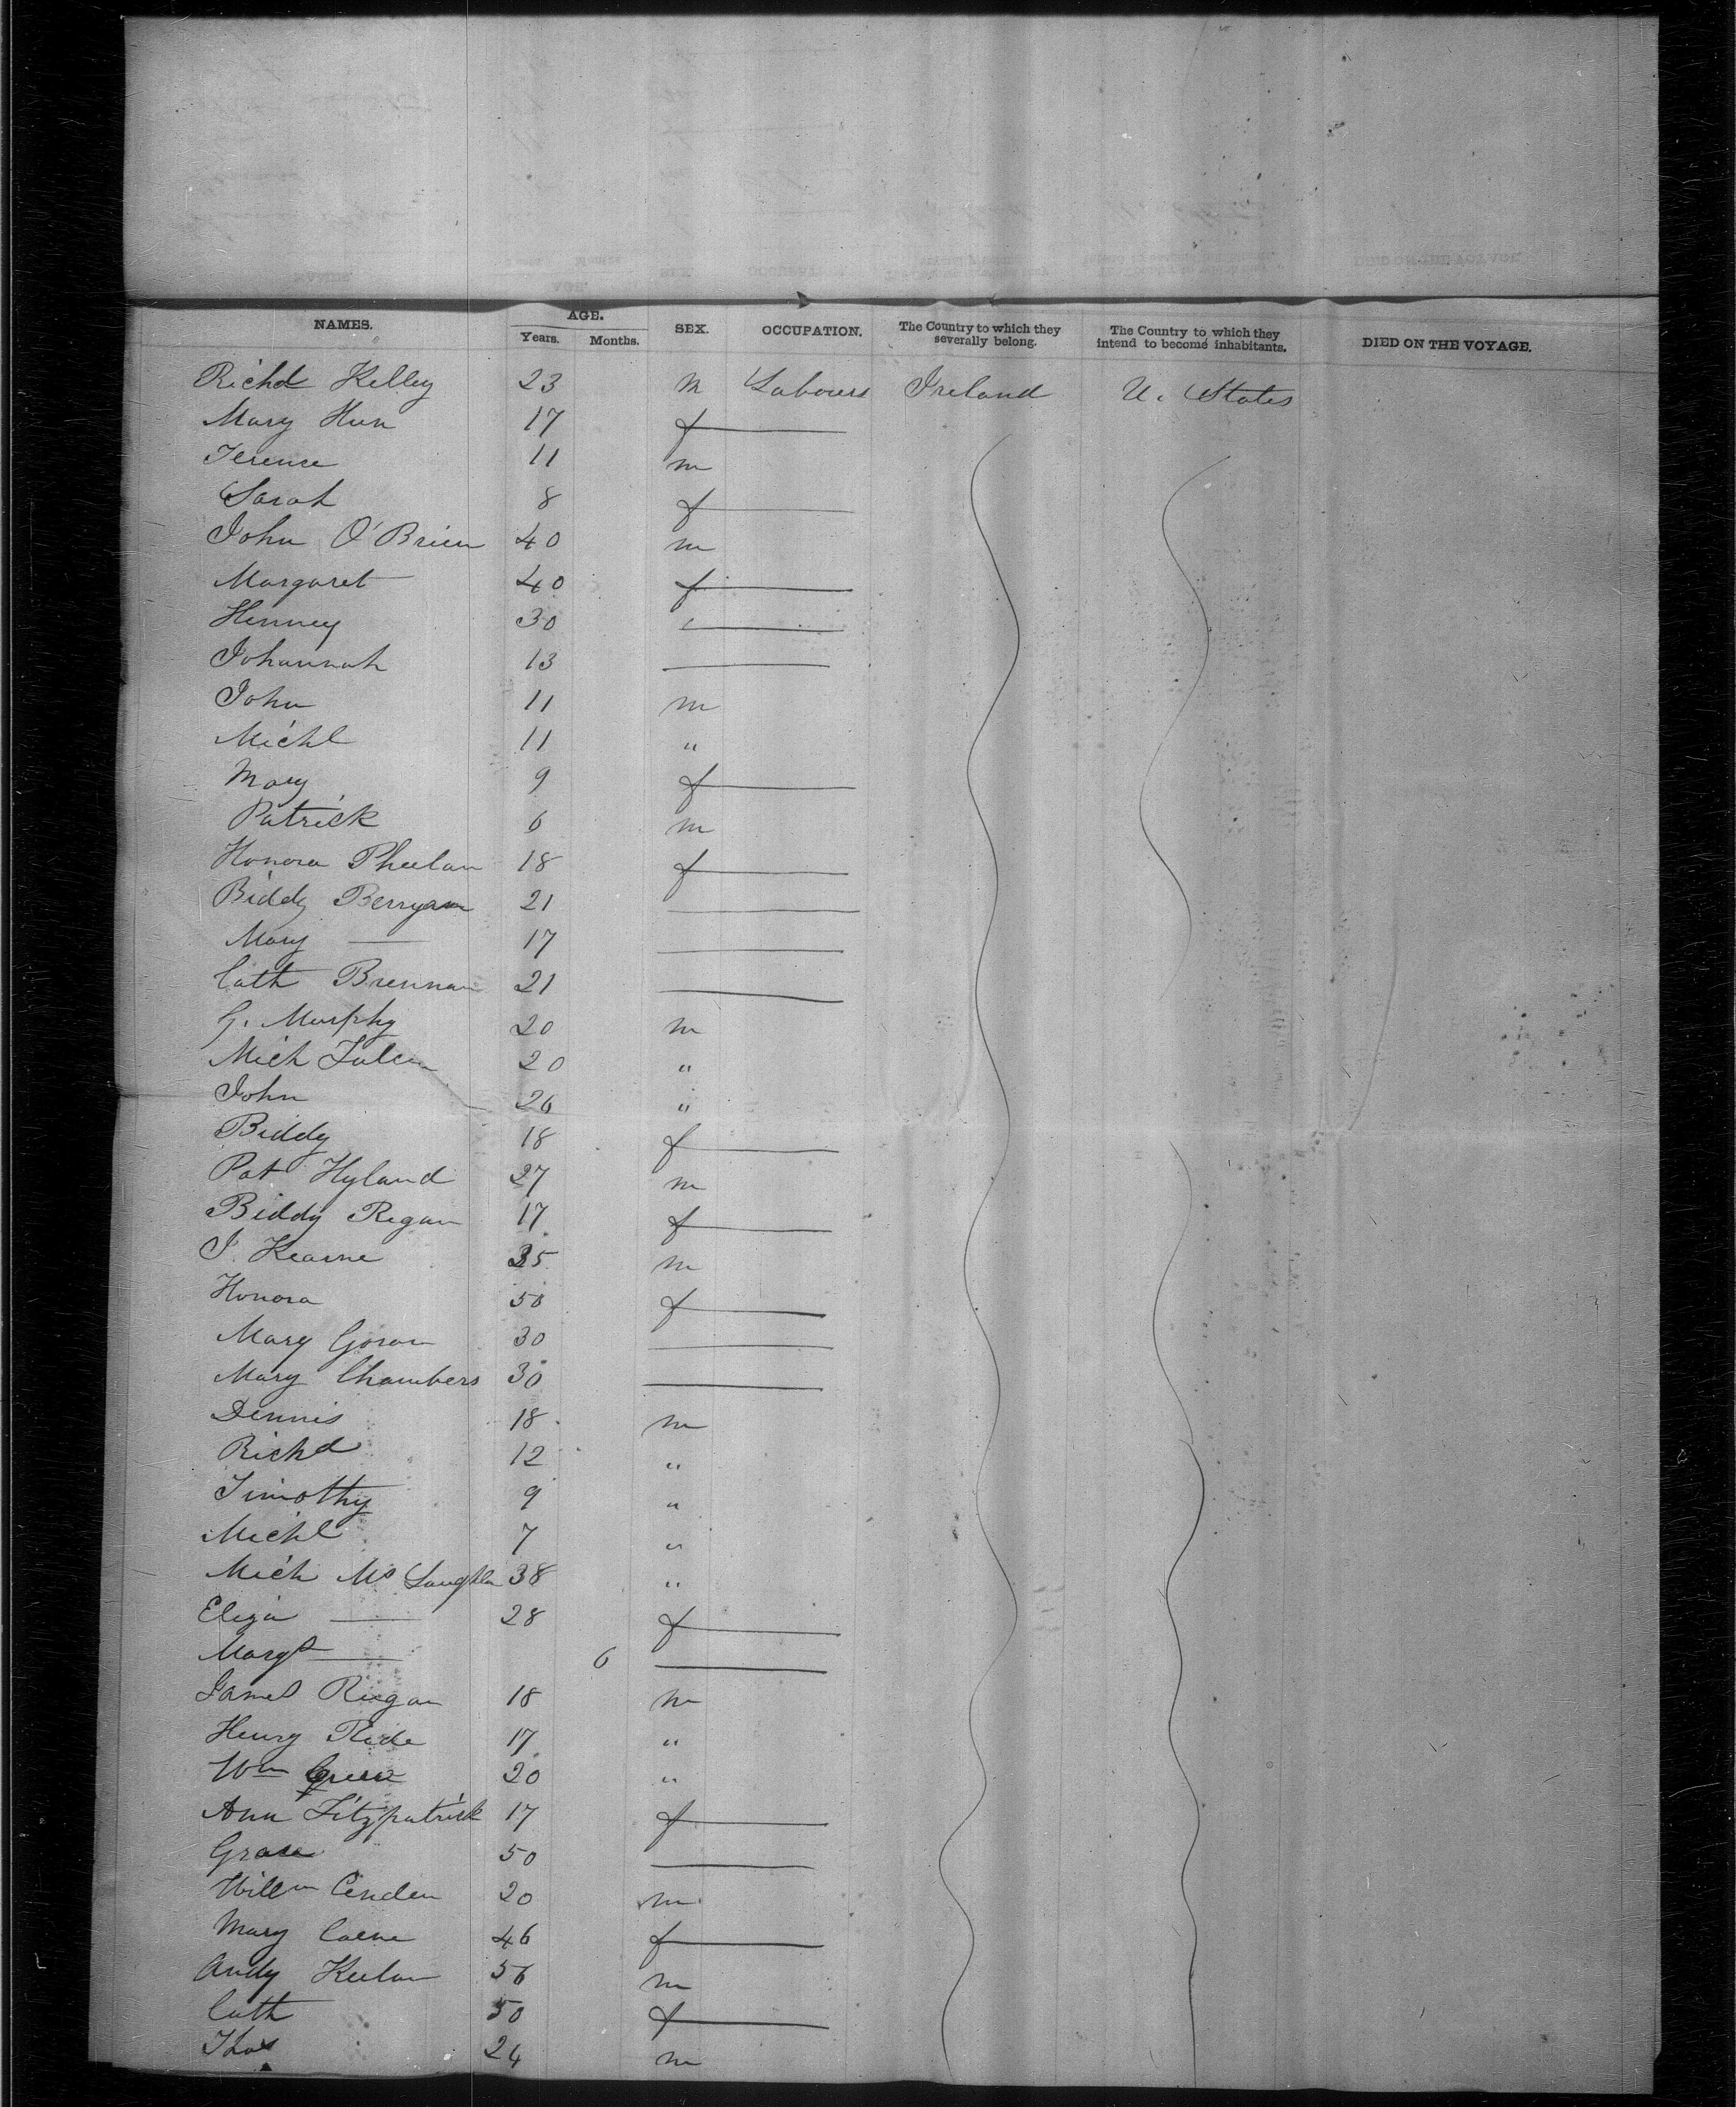 NAMES. AGE. Years. Months. SEX. OCCUPATION. The Country to which they severally belong. The Country to which they intend to become inhabitants. DIED ON THE VOYAGE.
Richd Kelley 23 m Labourer Ireland U. States
Mary Hun 17 f
Terence 11 m
Sarah 8 f
John O'Brien 40 m
Margaret 40 f
Henney 30 "
Johannah 13
John 11 m
Michl 11 "
Mary 9 f
Patrick 6 m
Honora Pheelan 18 f
Biddy Berryan 21
Mary — 17
Cath Brennan 21
G. Murphy 20 m
Mich 20 "
John 26 "
Biddy 18 f
Pat Hyland 27 m
Biddy Regan 17 f
J. Kearne 35 m
Honora 50 f
Mary Goran 30
Mary Chambers 30
Dennis 18 m
Richd 12 "
Timothy 9 "
Michl 7 "
Mich Mc Laughlin 38 "
Eliza — 28 f
Margt — 6
James Regan 18 m
Henry Ride 17 "
Wm 20 "
Ann Fitzpatrick 17 f
Grace 50
Willm Cenden 20 m
Mary Caene 46 f
Andy Keelan 56 m
Cath 50 f
Thos 24 m